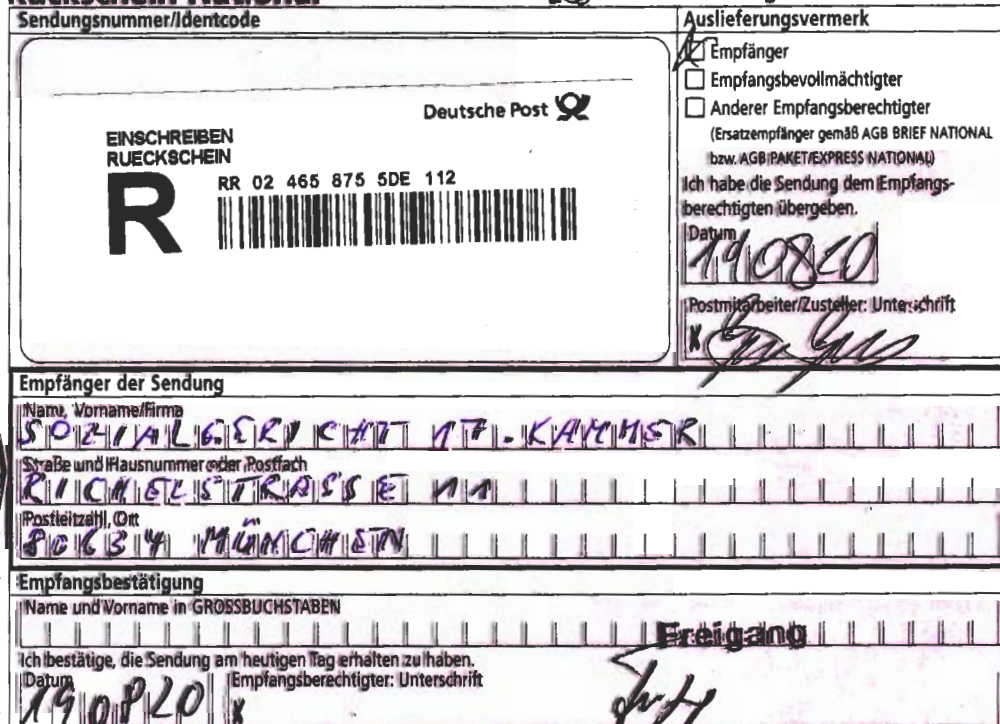 Rückschein National
Sendungsnummer/Identcode
Deutsche Post
EINSCHREIBEN
RUECKSCHEIN
R
RR 02 465 875 5DE 112
Auslieferungsvermerk
Empfänger
Empfangsbevollmächtigter
Anderer Empfangsberechtigter
(Ersatzempfänger gemäß AGB BRIEF NATIONAL
bzw. AGB PAKET/EXPRESS NATIONAL)
Ich habe die Sendung dem Empfangs-
berechtigten übergeben.
Datum
190820
Postmitarbeiter/Zusteller: Unterschrift
X
Empfänger der Sendung
Name, Vorname/Firma
SOZIALGERICHT 17. KAMMER
Straße und Hausnummer oder Postfach
RICHELSTRASSE 11
Postleitzahl, Ort
80634 MÜNCHEN
Empfangsbestätigung
Name und Vorname in GROSSBUCHSTABEN
Freigang
Ich bestätige, die Sendung am heutigen Tag erhalten zu haben.
Datum
190820
Empfangsberechtigter: Unterschrift
X